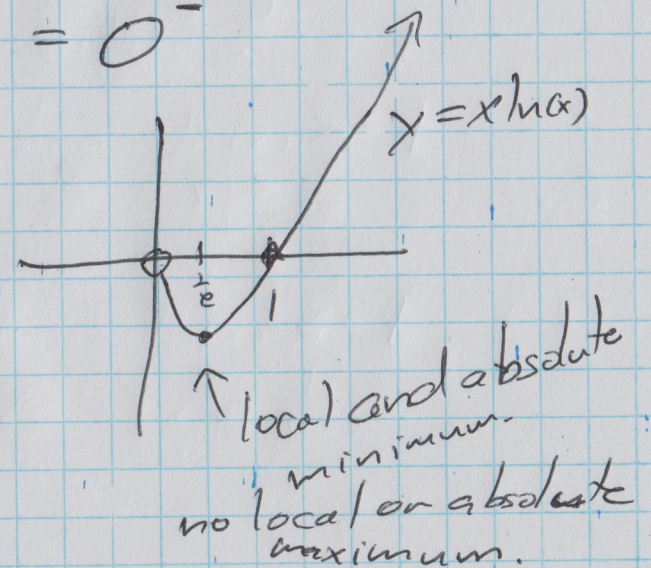 = 0⁻
y = x ln(x)
1/e
1
local and absolute
minimum.
no local or absolute
maximum.